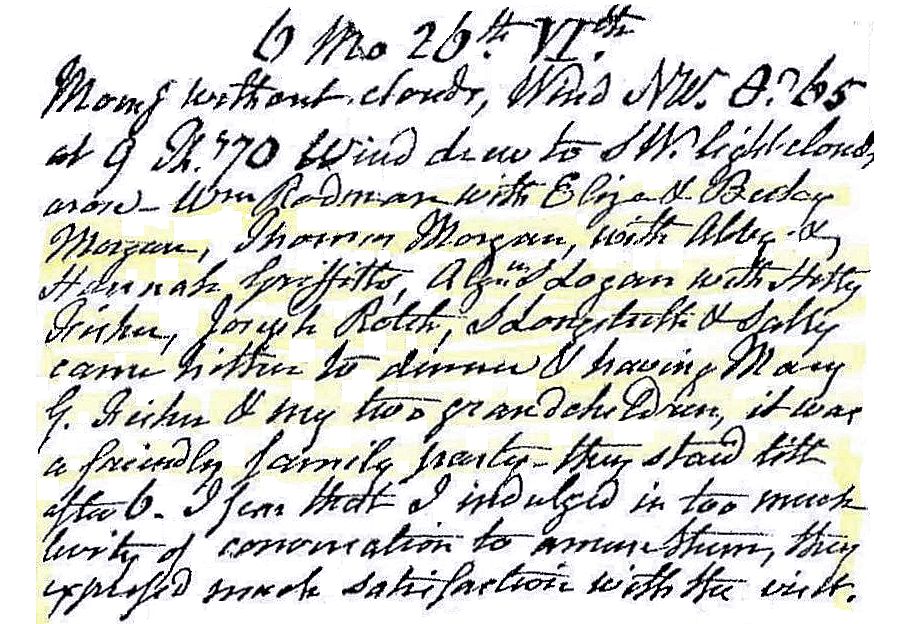 6 Mo 26th VI.th
Morng without clouds, Wind NW. Th. 65
at 9 Th. 70 Wind drew to SW. light clouds,
arose - Wm Rodman with Eliza & Becky
Morgan, Thomas Morgan, with Abby &
Hannah Griffitts, Algns Logan with Hetty
Fisher, Joseph Rotch, S Longstreth & Sally
came hither to dinner & having Mary
G. Fisher & my two grandchildren, it was
a friendly family party - they staid till
after 6. I fear that I indulged in too much
levity of conversation to amuse them, they
expressed much satisfaction with the visit.